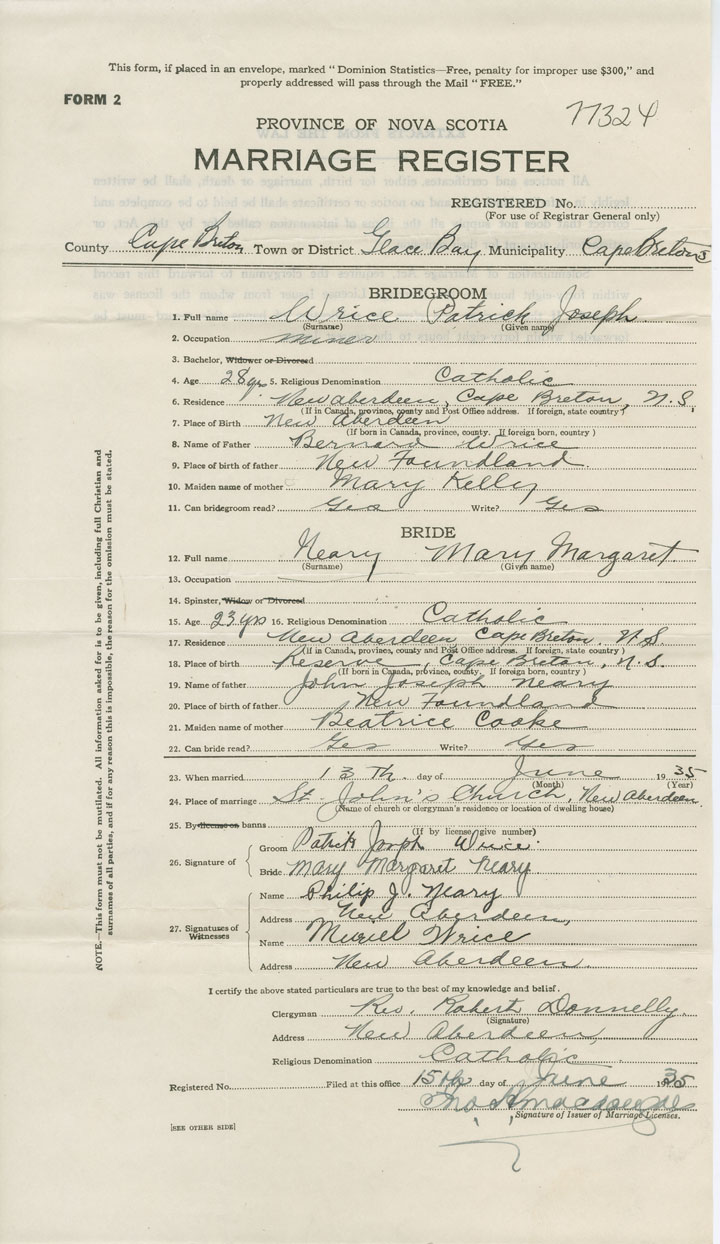 This form, if placed in an envelope, marked "Dominion Statistics—Free, penalty for improper use $300," and
properly addressed will pass through the Mail "FREE."
FORM 2
77324
PROVINCE OF NOVA SCOTIA
MARRIAGE REGISTER
REGISTERED No.
(For use of Registrar General only)
County Cape Breton Town or District Glace Bay Municipality Cape Breton
BRIDEGROOM
1. Full name Wrice Patrick Joseph
(Surname) (Given name)
2. Occupation miner
3. Bachelor, Widower or Divorced
4. Age 28 yr 5. Religious Denomination Catholic
6. Residence New Aberdeen, Cape Breton, N.S.
(If in Canada, province, county and Post Office address. If foreign, state country)
7. Place of Birth New Aberdeen
(If born in Canada, province, county. If foreign born, country )
8. Name of Father Bernard Wrice
9. Place of birth of father New Foundland
10. Maiden name of mother Mary Kelly
11. Can bridegroom read? Yes Write? Yes
BRIDE
12. Full name Neary Mary Margaret
(Surname) (Given name)
13. Occupation
14. Spinster, Widow or Divorced
15. Age 23 yrs 16. Religious Denomination Catholic
17. Residence New Aberdeen, Cape Breton. N.S
(If in Canada, province, county and Post Office address. If foreign, state country )
18. Place of birth Reserve, Cape Breton, N.S.
(If born in Canada, province, county. If foreign born, country )
19. Name of father John Joseph Neary
20. Place of birth of father New Foundland
21. Maiden name of mother Beatrice Cooke
22. Can bride read? Yes Write? Yes
23. When married 13 Th. day of June 1935
(Month) (Year)
24. Place of marriage St. John's Church, New Aberdeen.
(Name of church or clergyman's residence or location of dwelling house)
25. By license or banns
(If by license give number)
26. Signature of
Groom Patrick Joseph Wrice.
Bride Mary Margaret Neary
27. Signatures of Witnesses
Name Philip J. Neary
Address New Aberdeen,
Name Muriel Wrice
Address New Aberdeen.
I certify the above stated particulars are true to the best of my knowledge and belief.
Clergyman Rev. Robert Donnelly
(Signature)
Address New Aberdeen,
Religious Denomination Catholic
Registered No. Filed at this office 15th day of June 1935
Signature of Issuer of Marriage Licenses.
[SEE OTHER SIDE]
NOTE.—This form must not be mutilated. All information asked for is to be given, including full Christian and
surnames of all parties, and if for any reason this is impossible, the reason for the omission must be stated.